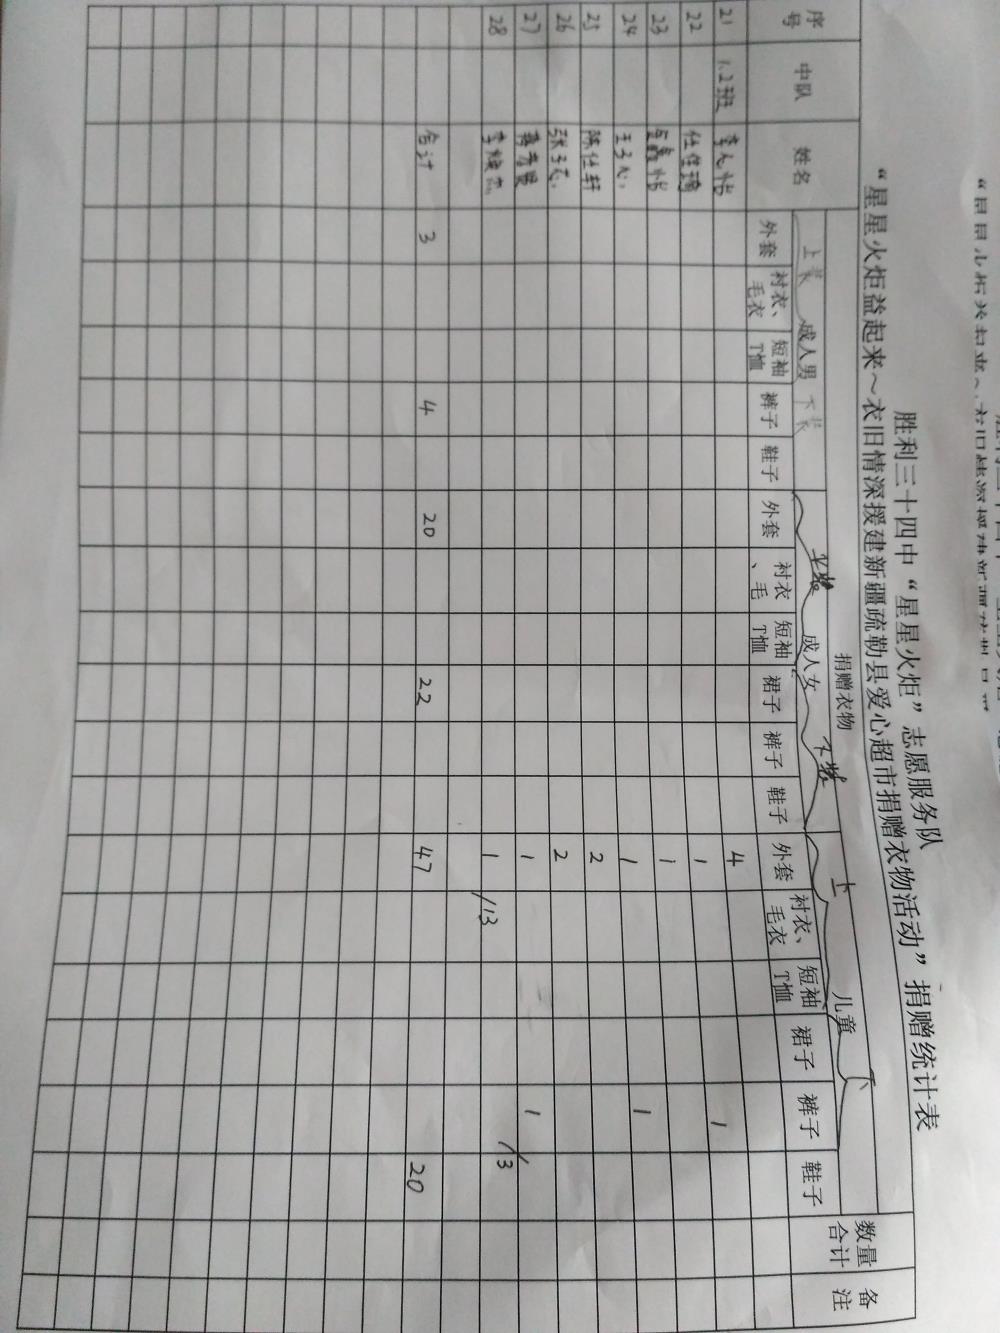 胜利三十四中“星星火炬”志愿服务队
“星星火炬益起来～衣旧情深援建新疆疏勒县爱心超市捐赠衣物活动”捐赠统计表
序号 中队 姓名 捐赠衣物 数量合计 备注
上装 成人男 下装 上装 成人女 下装 上 儿童 下
外套 衬衣、毛衣 短袖T恤 裤子 鞋子 外套 衬衣、毛 短袖T恤 裙子 裤子 鞋子 外套 衬衣、毛衣 短袖T恤 裙子 裤子 鞋子
21 1.2班 4 1
22 1
23 1
24 王子心 1 1
25 陈仕轩 2
26 2
27 1 1
28 1 /13 /3
合计 3 4 20 22 47 20